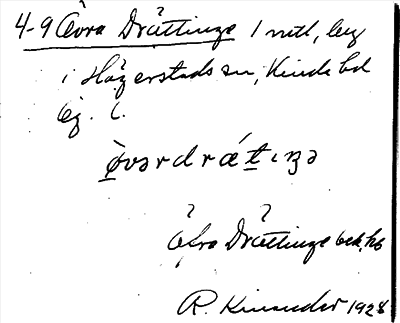 4-9 Övra Drättinge 1 mtl, leg
i Högerstads sn, Kinda hd
Ög. l.
òvərdrǽtıŋə
Öfra Drättinge bek. hb
R. Kinander 1928